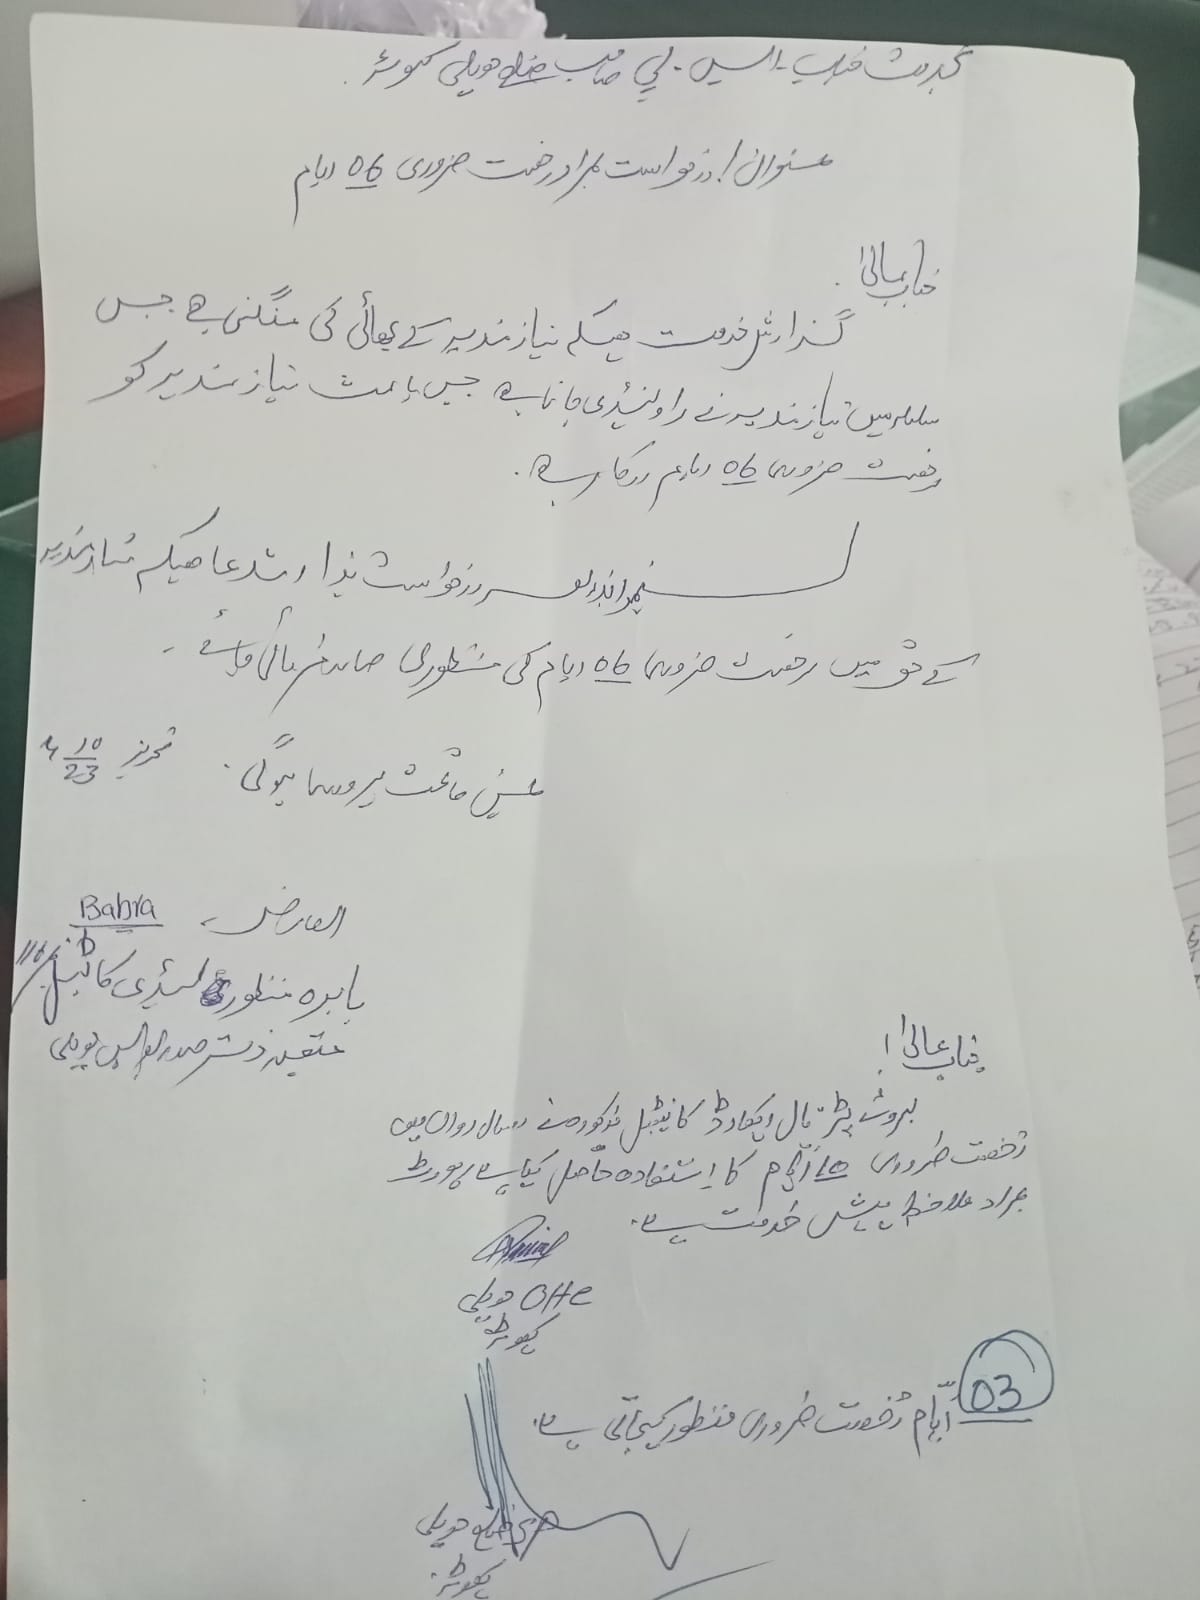 بخدمت جناب ایس۔ پی صاحب ضلع حویلی کہوٹہ۔
عنوان! درخواست بمراد رخصت ضروری 06 ایام
جناب عالی!
گذارش خدمت ھیکہ نیازمندیہ کے بھائی کی منگنی ہے جس
سلسلہ میں نیازمندیہ نے راولپنڈی جانا ہے جس باعث نیازمندیہ کو
رخصت ضروری 06 ایام درکار ہے۔
لہٰذا بذریعہ درخواست ہذا استدعا ھیکہ نیازمندیہ
کے حق میں رخصت ضروری 06 ایام کی منظوری صادر فرمائی جائے۔
عین ماتحت پروری ہوگی۔
تحریر 10/23
العارض
Babra
بابرہ منظور لیڈی کانسٹیبل 116
متعینہ دفتر صدر پولیس حویلی
جناب عالی!
بروئے پڑتال ریکارڈ کانسٹیبل مذکورہ نے سال رواں میں
رخصت ضروری 10 ایام کا استفادہ حاصل کیا ہے رپورٹ
بمراد ملاحظہ پیش خدمت ہے۔
OHC حویلی
کہوٹہ
03 ایام رخصت ضروری منظور کیجاتی ہے۔
ضلع حویلی
کہوٹہ